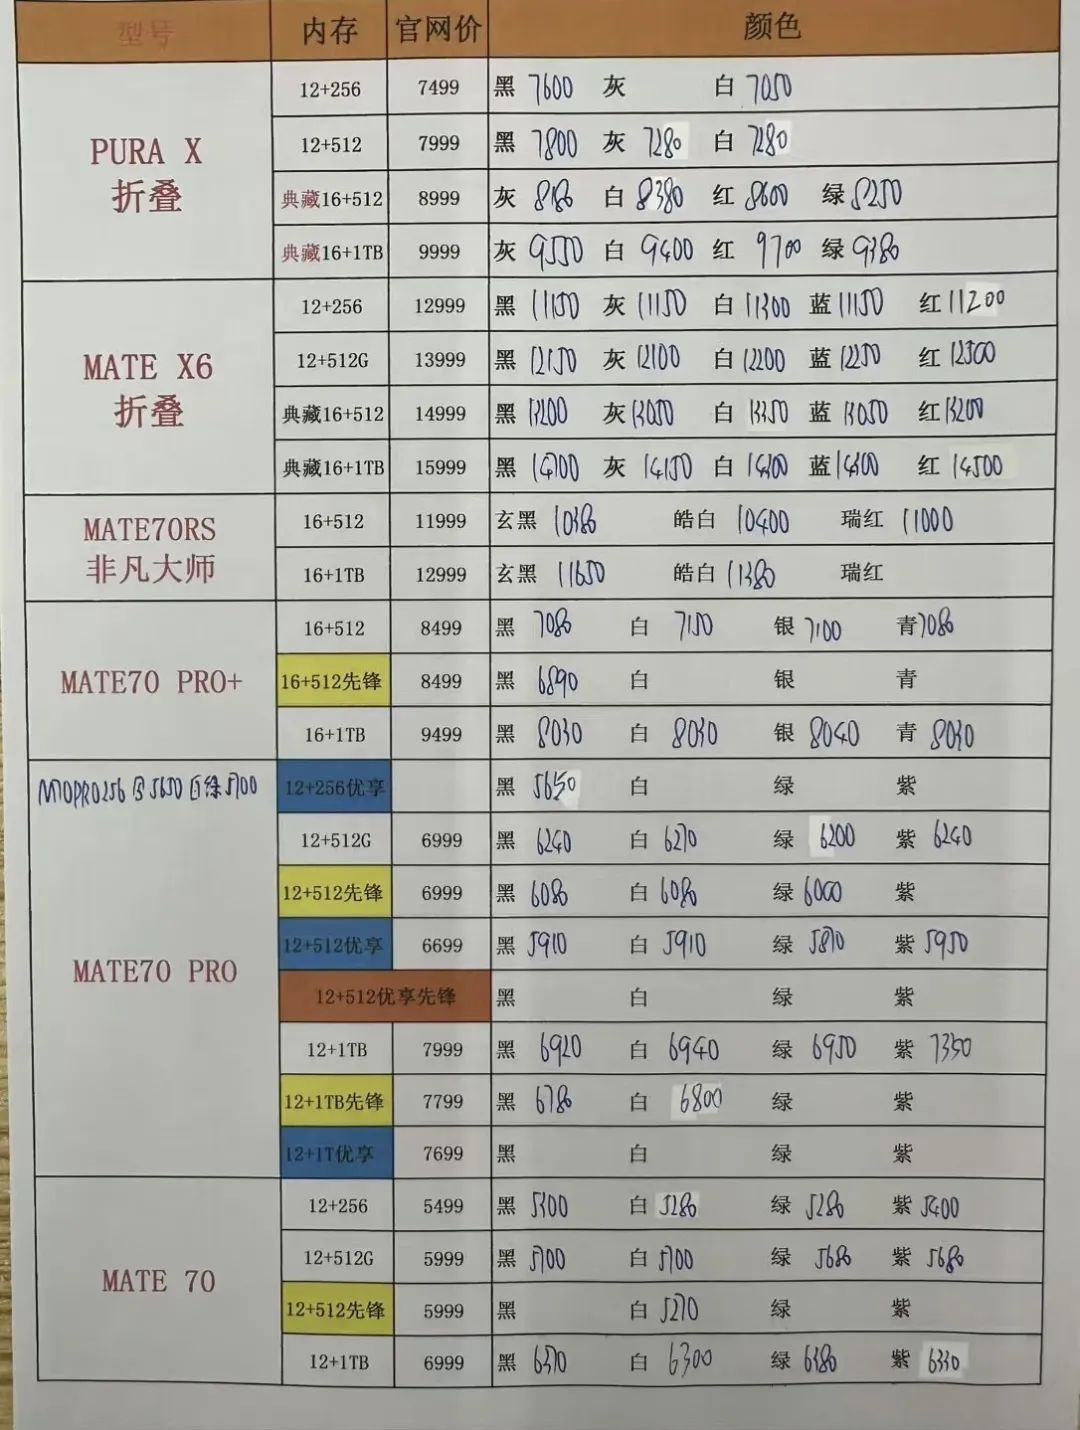 型号 内存 官网价 颜色
PURA X
折叠
12+256 7499 黑 7600 灰 白 7050
12+512 7999 黑 7800 灰 7280 白 7280
典藏16+512 8999 灰 8180 白 8380 红 8600 绿 8250
典藏16+1TB 9999 灰 9550 白 9400 红 9700 绿 9380
MATE X6
折叠
12+256 12999 黑 11150 灰 11150 白 11300 蓝 11150 红 11200
12+512G 13999 黑 12150 灰 12100 白 12200 蓝 12250 红 12300
典藏16+512 14999 黑 13200 灰 13050 白 13350 蓝 13050 红 13200
典藏16+1TB 15999 黑 灰 14150 白 蓝 红 14500
MATE70RS
非凡大师
16+512 11999 玄黑 10380 皓白 10400 瑞红 11000
16+1TB 12999 玄黑 11650 皓白 11380 瑞红
MATE70 PRO+
16+512 8499 黑 7080 白 7150 银 7100 青 7080
16+512先锋 8499 黑 6890 白 银 青
16+1TB 9499 黑 8030 白 8030 银 8040 青 8030
M70PRO256 白绿5700
MATE70 PRO
12+256优享 黑 5650 白 绿 紫
12+512G 6999 黑 6240 白 6270 绿 6200 紫 6240
12+512先锋 6999 黑 6080 白 6080 绿 6000 紫
12+512优享 6699 黑 5910 白 5910 绿 5870 紫 5950
12+512优享先锋 黑 白 绿 紫
12+1TB 7999 黑 6920 白 6940 绿 6950 紫 7350
12+1TB先锋 7799 黑 6780 白 6800 绿 紫
12+1T优享 7699 黑 白 绿 紫
MATE 70
12+256 5499 黑 5300 白 5280 绿 5280 紫 5400
12+512G 5999 黑 5700 白 5700 绿 5680 紫 5680
12+512先锋 5999 黑 白 5270 绿 紫
12+1TB 6999 黑 6370 白 6300 绿 6380 紫 6330